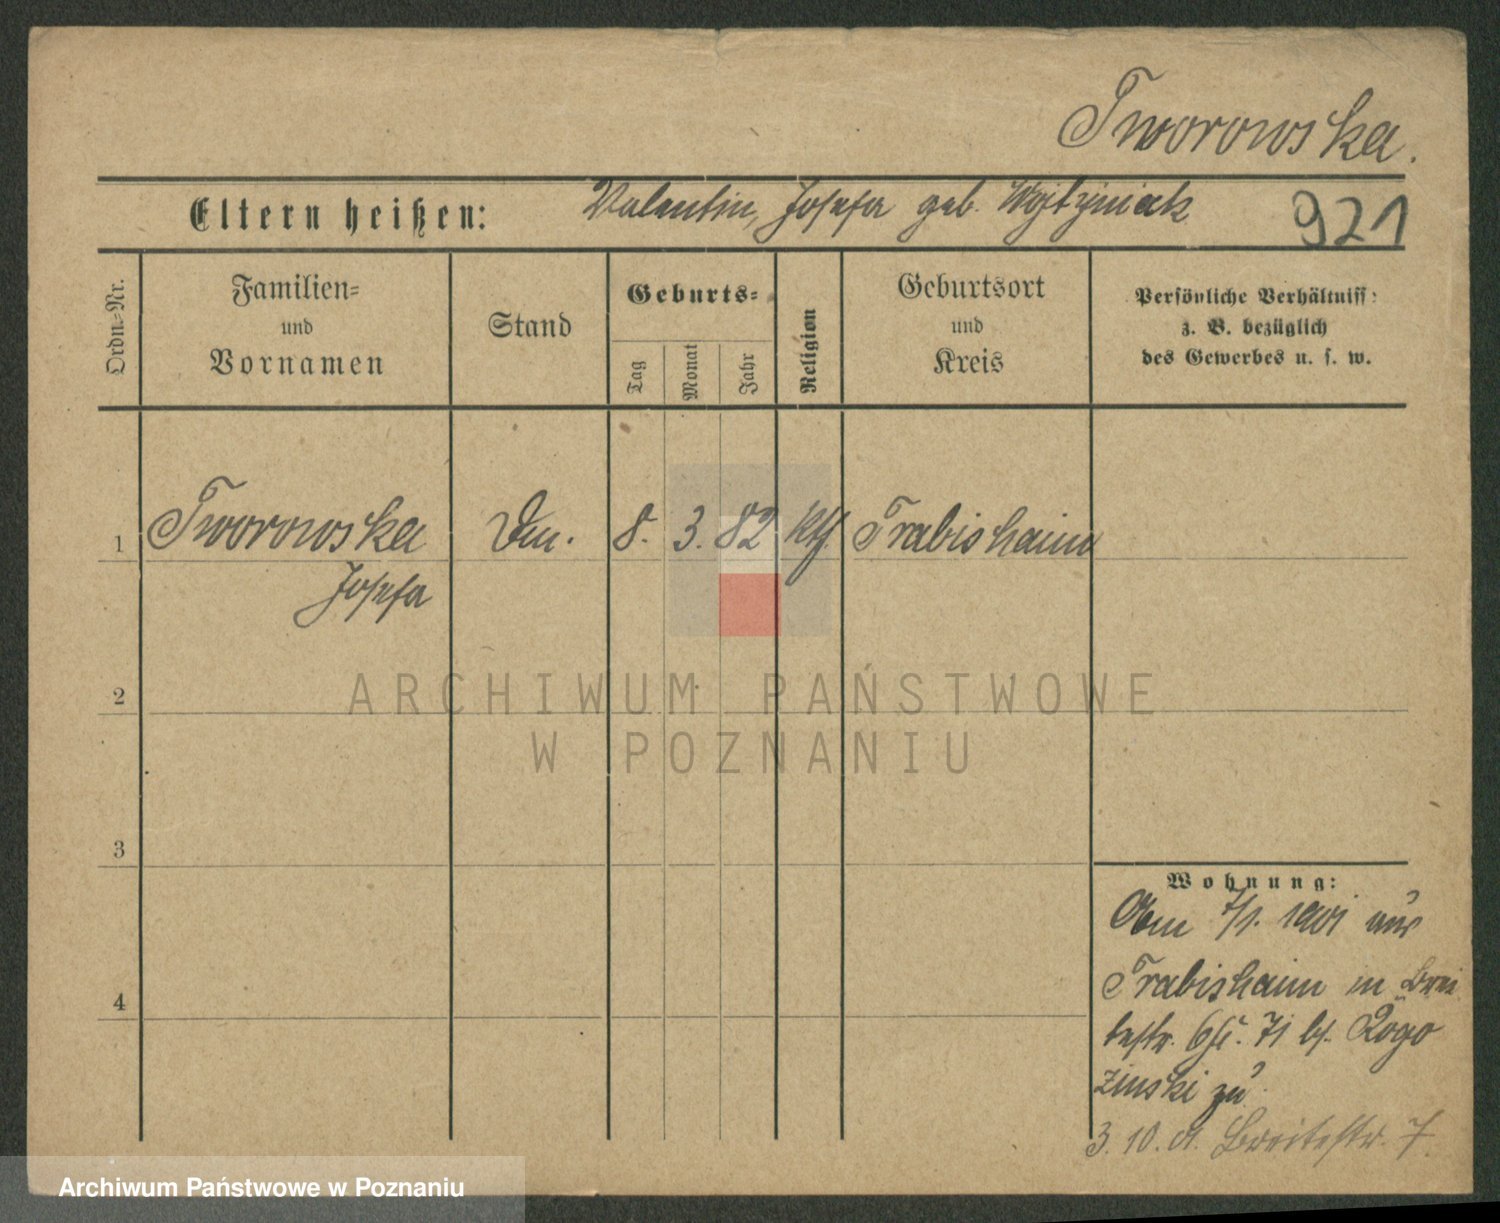 Tworowska.
Eltern heißen: Valentin, Josefa geb. Wojtyniak 921
Ordn.-Nr.
Familien-
und
Vornamen
Stand
Geburts-
Tag
Monat
Jahr
Religion
Geburtsort
und
Kreis
Persönliche Verhältniss:
z. B. bezüglich
des Gewerbes u. s. w.
1 Tworowska 8. 3. 82 kth. Trabishaim
Josefa
2
3
4
Wohnung:
7/1. 1901 aus
Trabishaim in Brei
testr. Rogo
zinski zu
3. 10. 01. Breitestr. 7.
ARCHIWUM PAŃSTWOWE
W POZNANIU
Archiwum Państwowe w Poznaniu